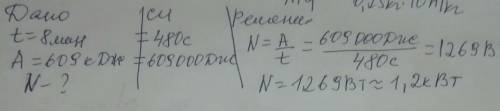 Дано
t = 8мин
A = 609кДж
N - ?
СИ
= 480с
= 609000Дж
Решение
N = A/t = 609000Дж/480с = 1269В
N = 1269Вт ≈ 1,2кВт